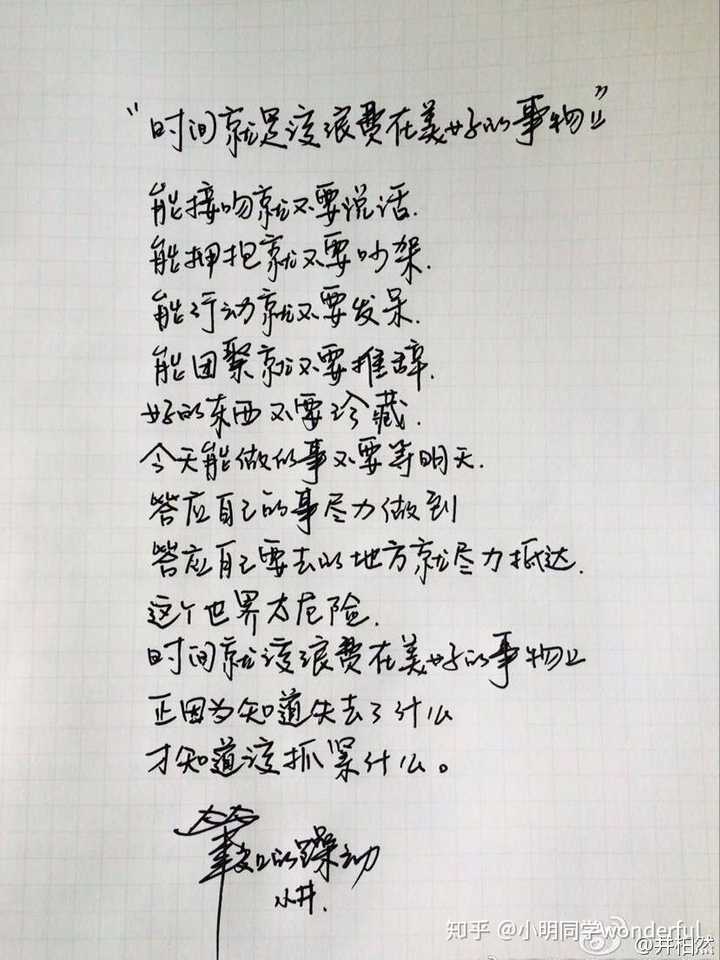 “时间就是该浪费在美好的事物上”
能接吻就不要说话.
能拥抱就不要吵架.
能行动就不要发呆.
能团聚就不要推辞.
好的东西不要珍藏.
今天能做的事不要等明天.
答应自己的事尽力做到
答应自己要去的地方就尽力抵达.
这个世界太危险.
时间就该浪费在美好的事物上
正因为知道失去了什么
才知道该抓紧什么。
的躁动
小井.
知乎 @小明同学wonderful
@井柏然